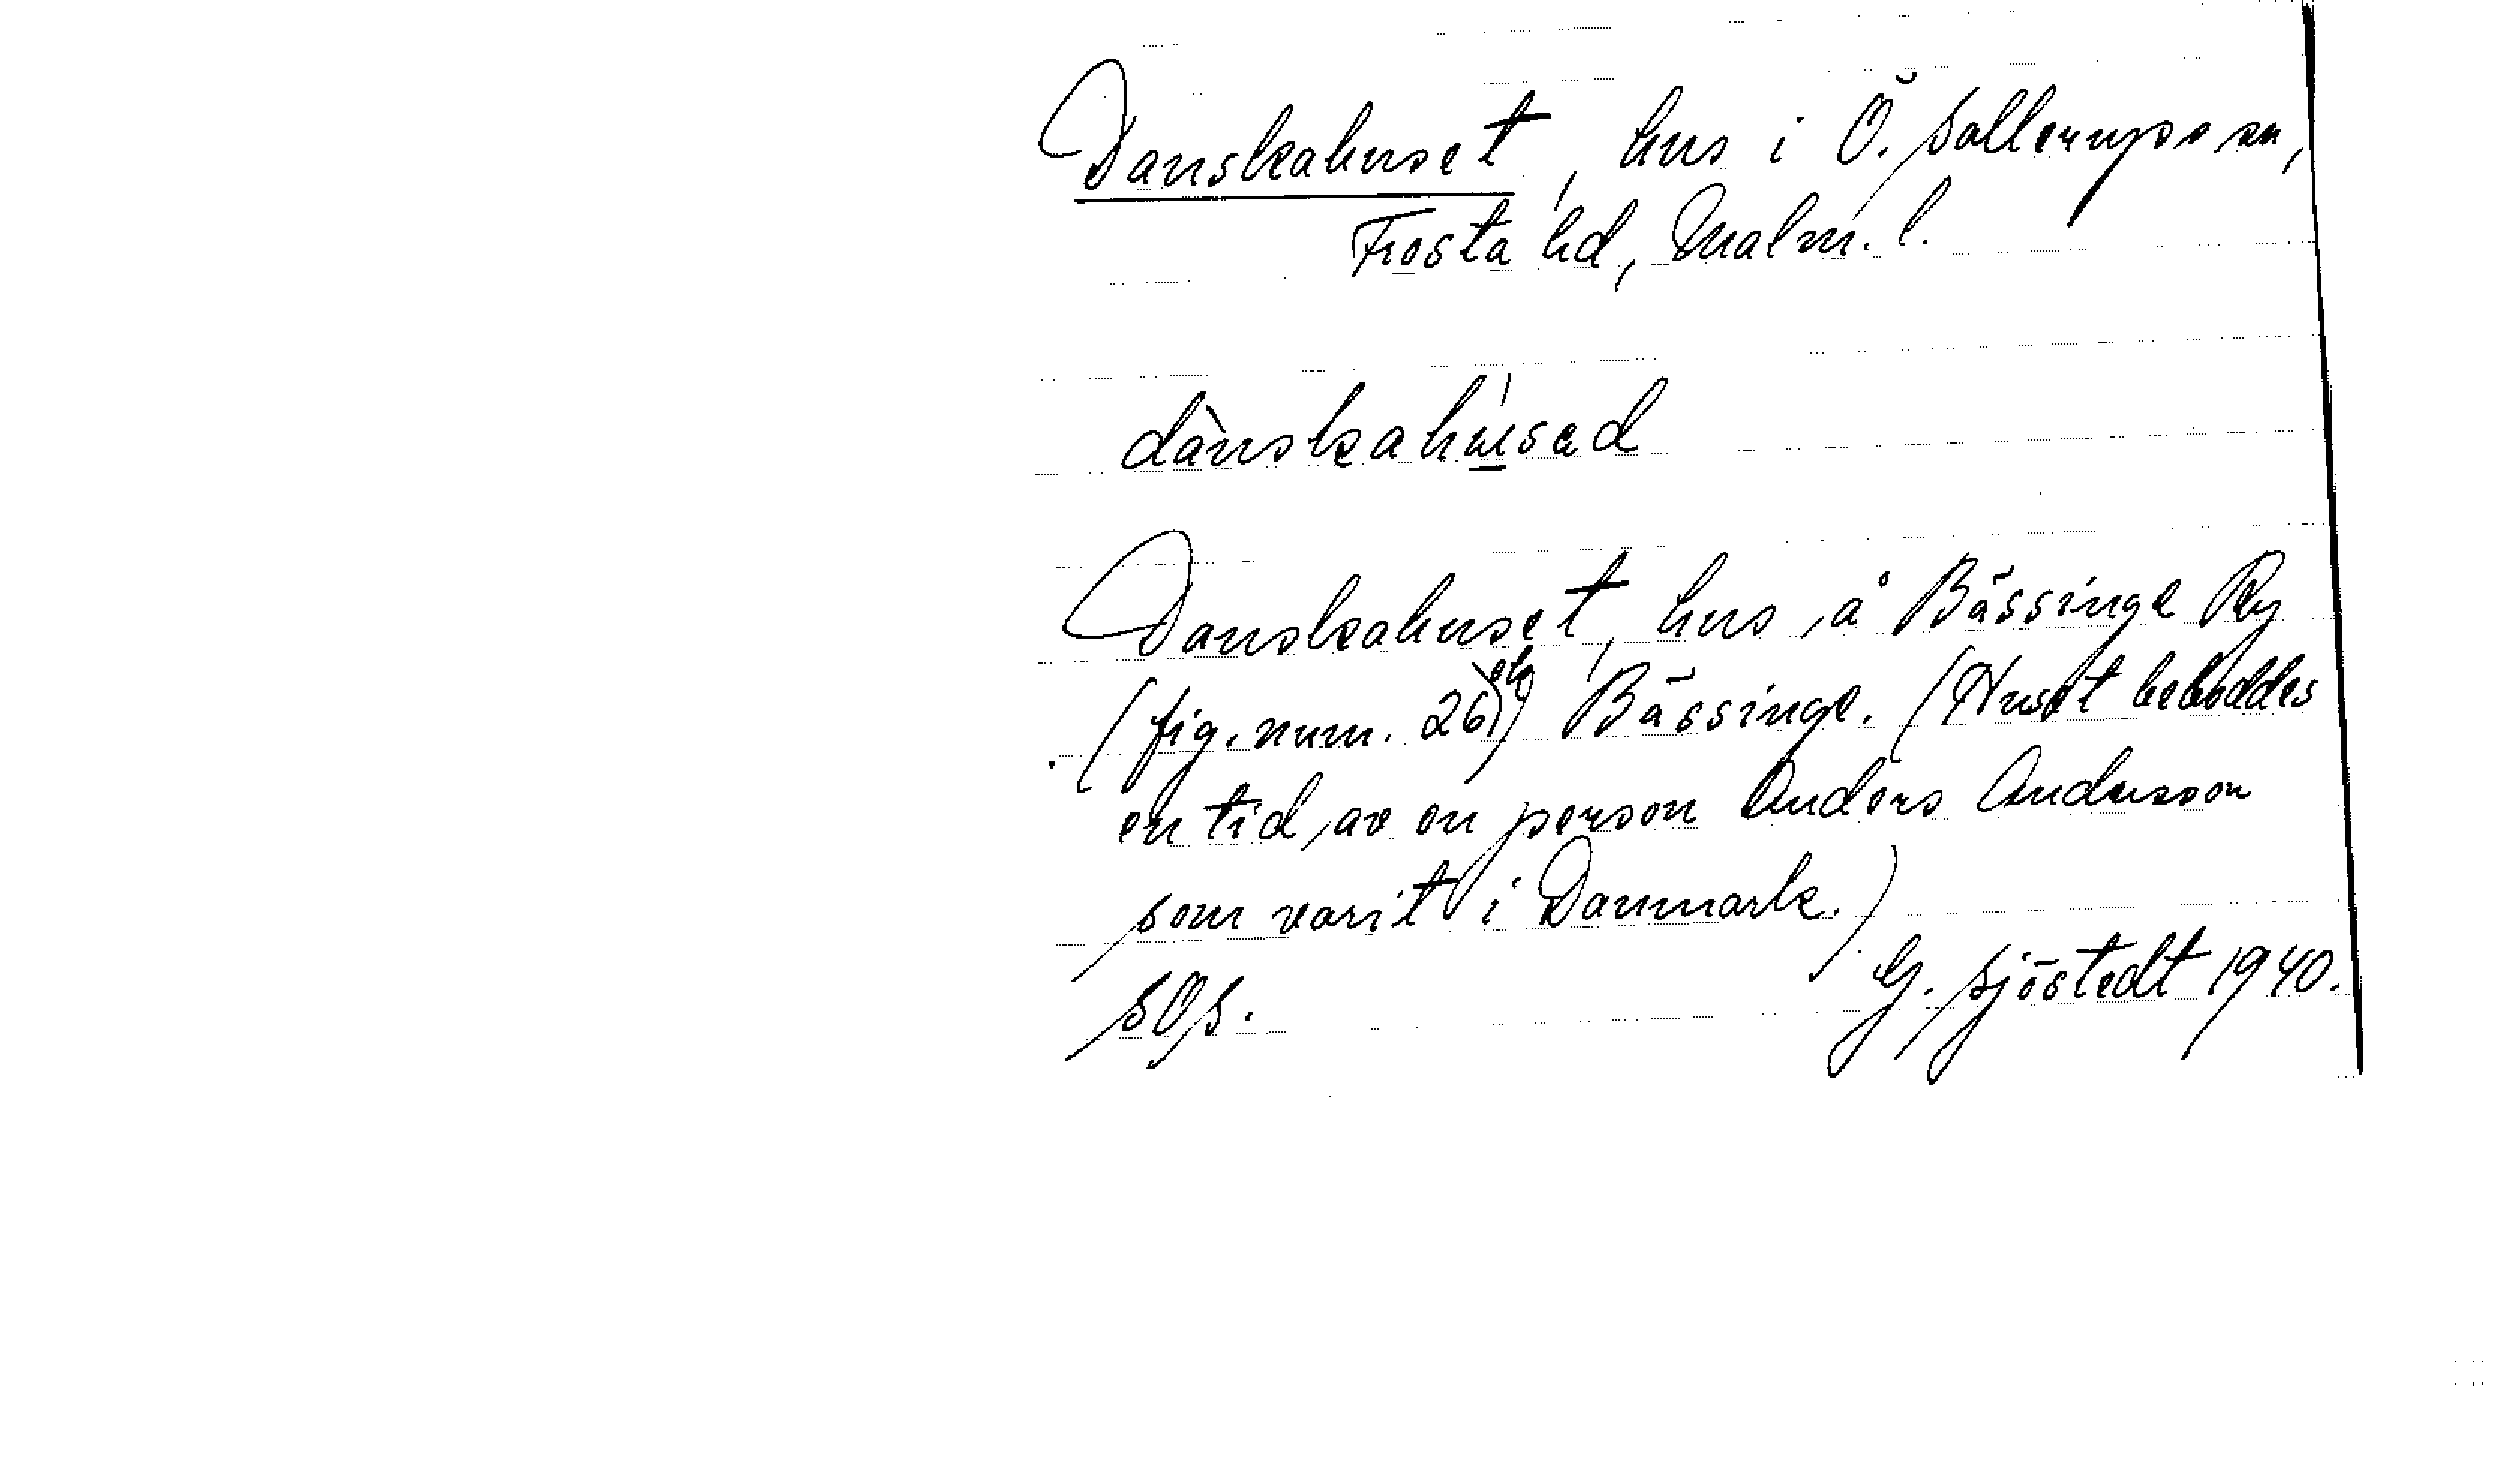 Danskahuset, hus i Ö. Sallerups sn,
Frosta hd, Malm. l.
dànskahúsad
Danskahuset, hus å Bässinge Ry
(fig. num. 26) Bässinge. (Huset beboddes
en tid av en person Anders Andersson
som varit i Danmark.)
SOS. G. Sjöstedt 1940.